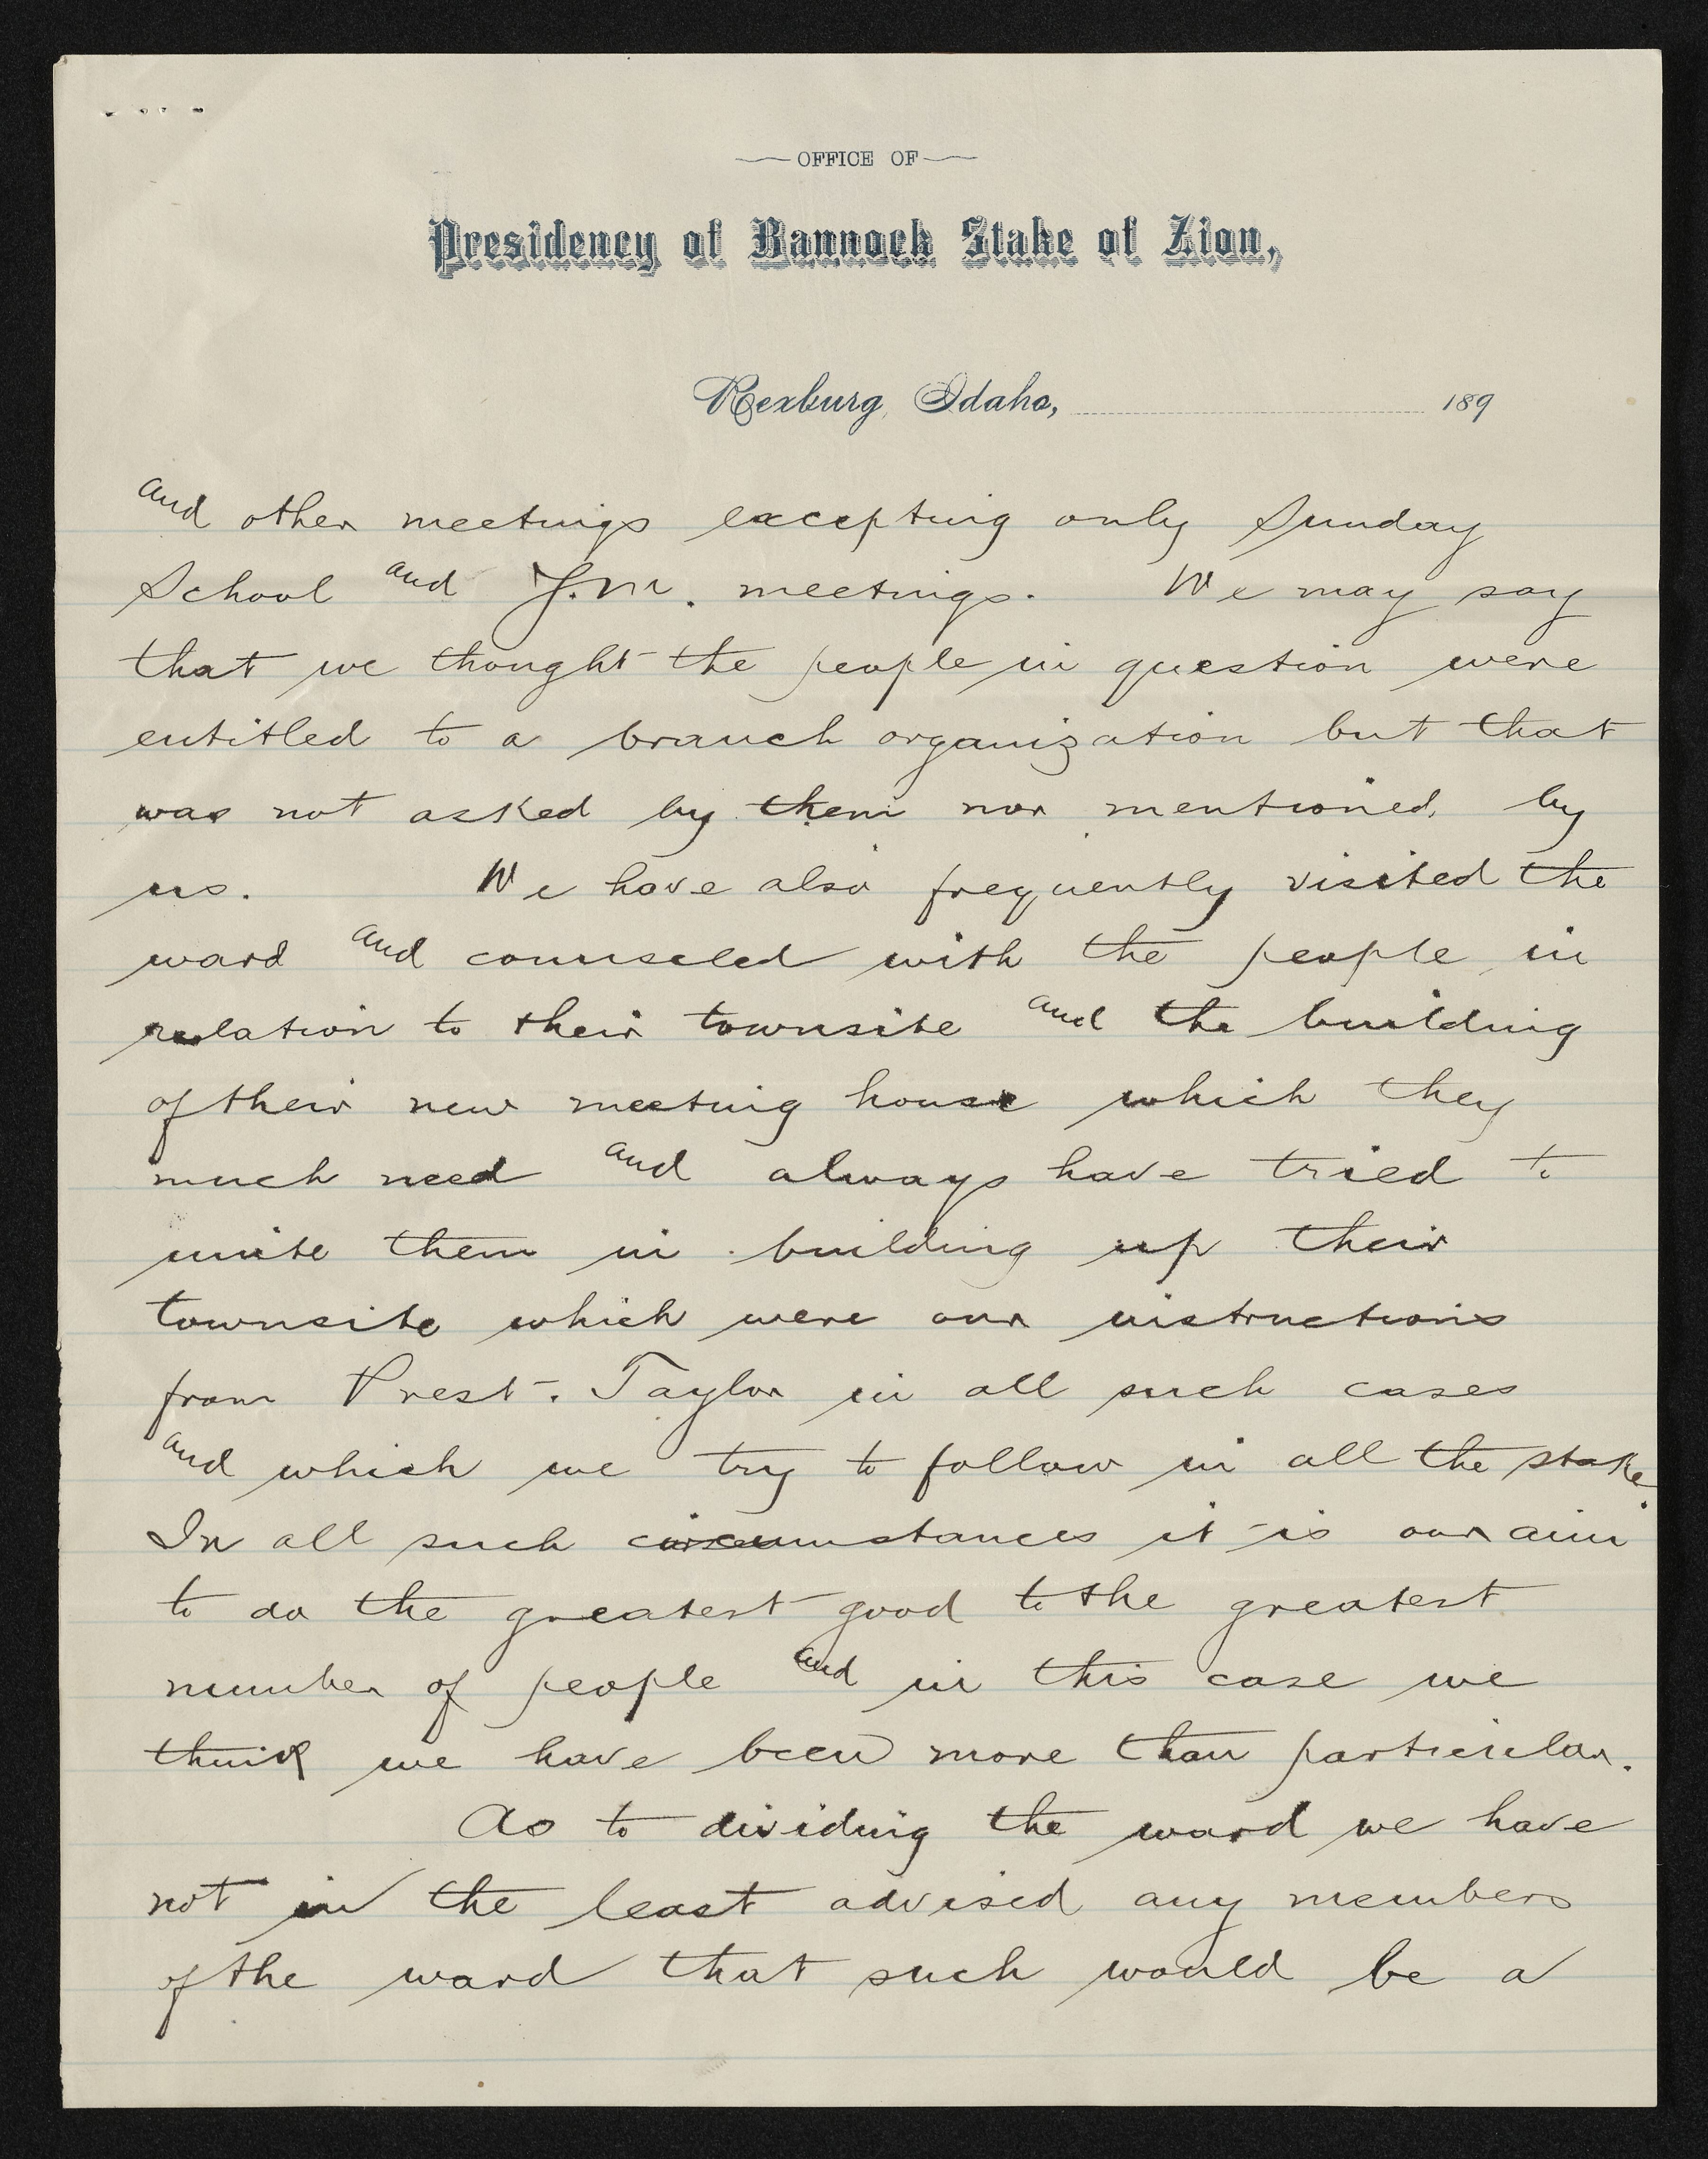 OFFICE OF
Presidency of Bannock Stake of Zion,
Rexburg, Idaho, 189
and other meetings excepting only Sunday
School and Y.M. meetings. We may say
that we thought the people in question were
entitled to a branch organization but that
was not asked by them nor mentioned, by
us. We have also frequently visited the
ward and counseled with the people in
relation to their townsite and the building
of their new meeting house which they
much need and always have tried to
unite them in building up their
townsite which were our instructions
from Prest. Taylor in all such cases
and which we try to follow in all the stake.
In all such circumstances it is our aim
to do the greatest good to the greatest
number of people and in this case we
think we have been more than particular.
As to dividing the ward we have
not in the least advised any members
of the ward that such would be a